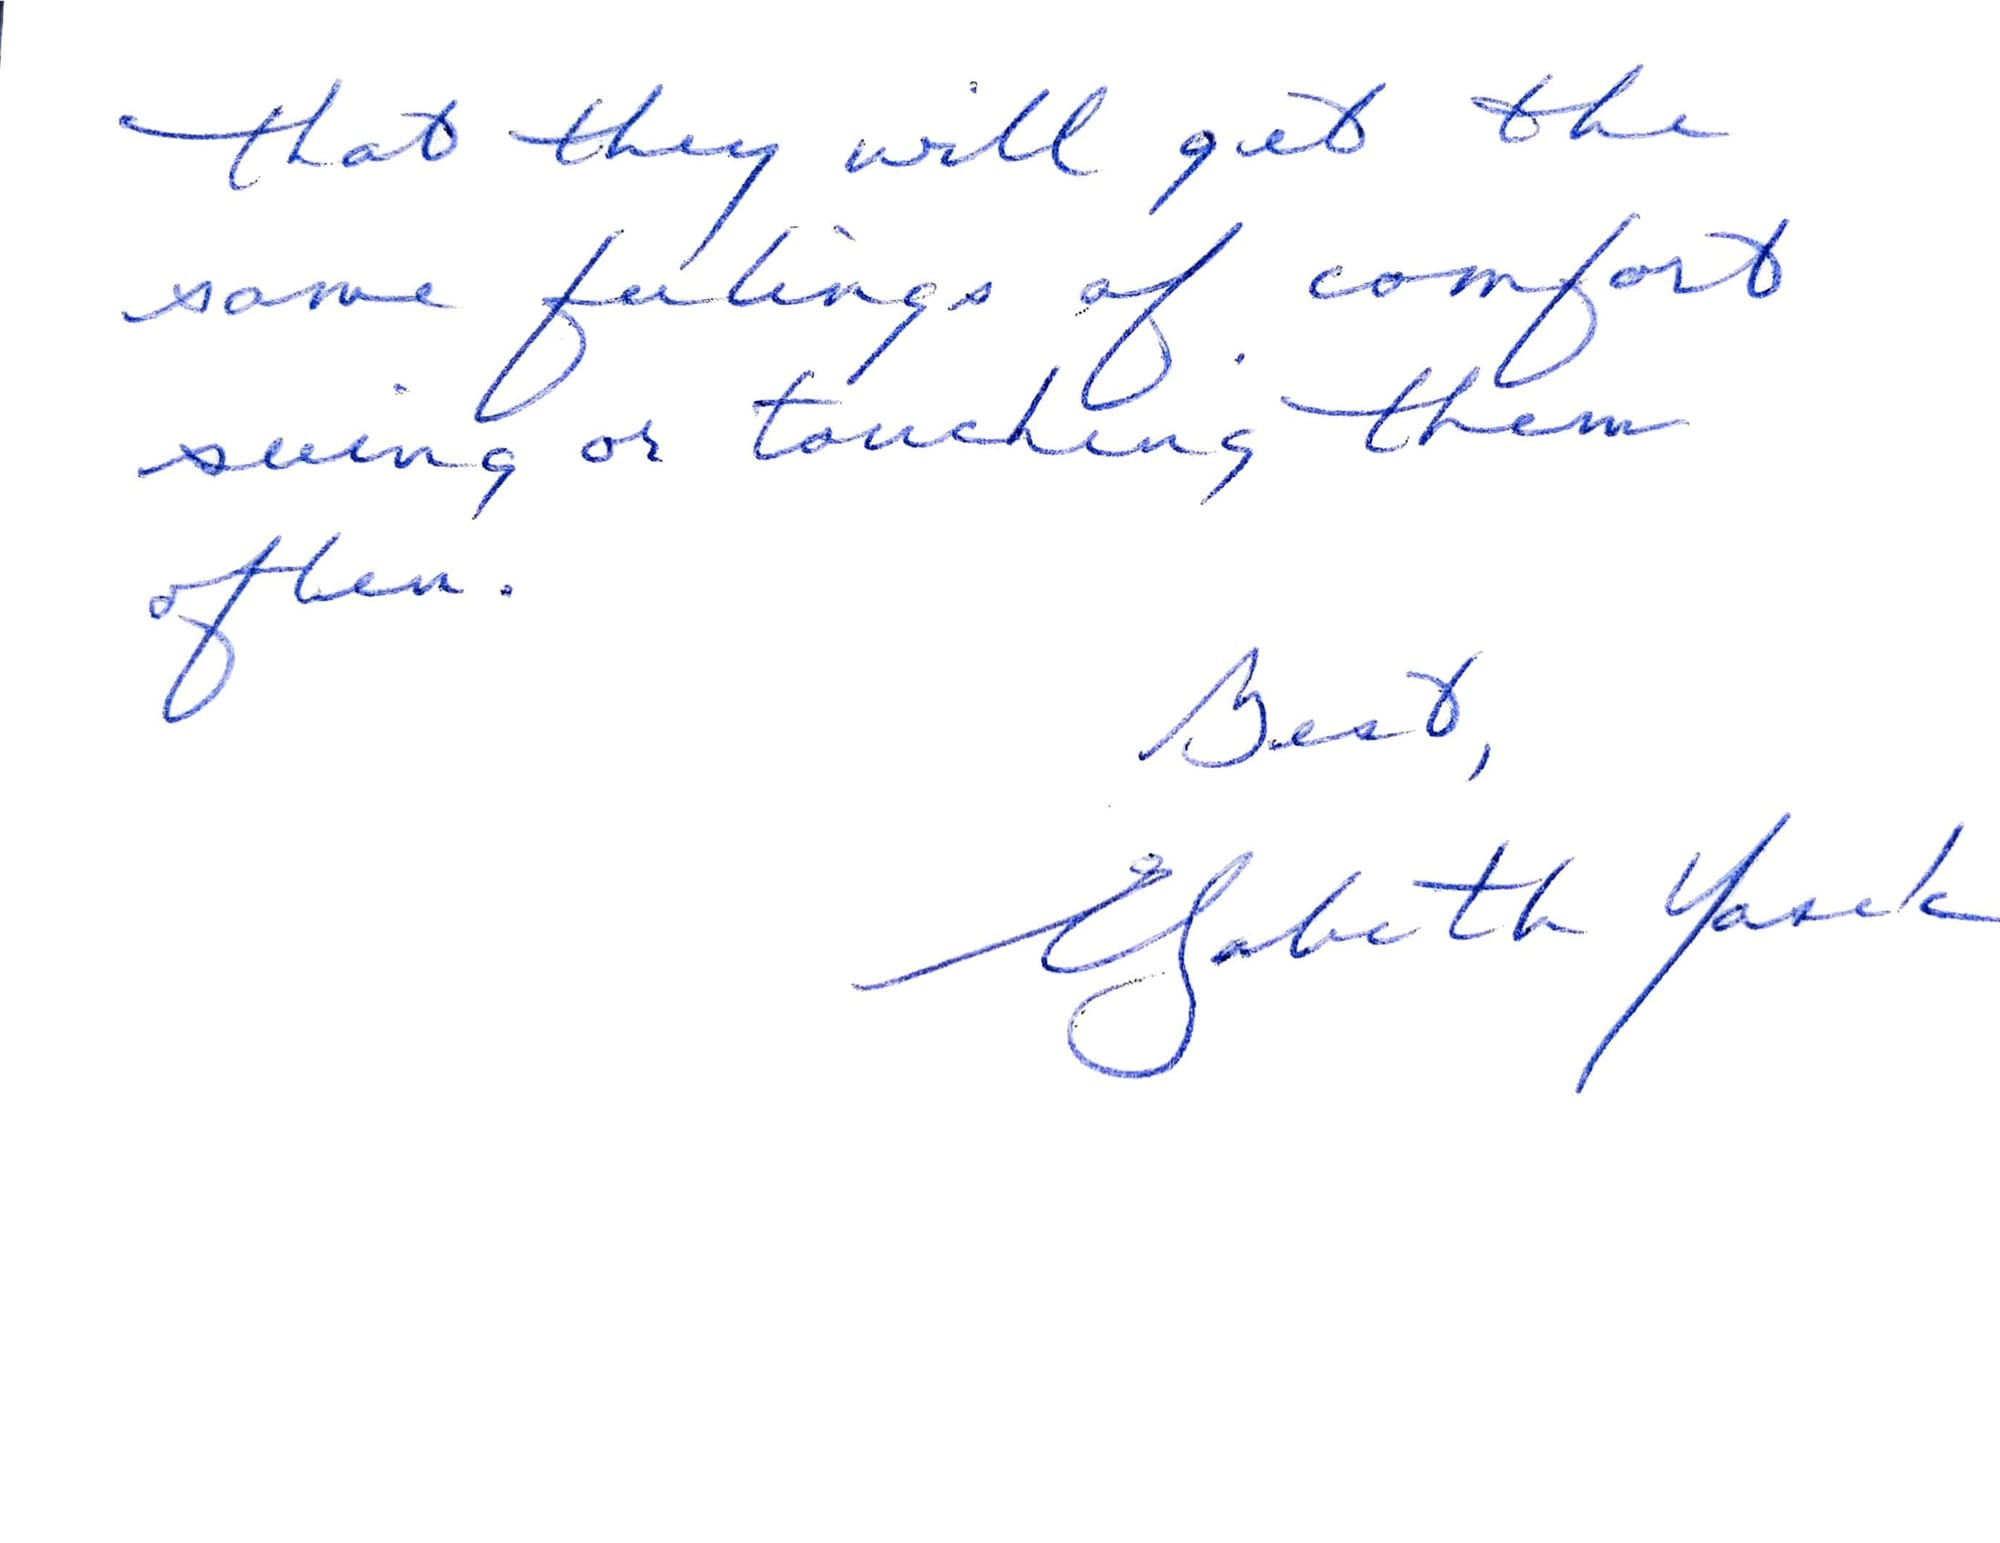 that they will get the
same feelings of comfort
seeing or touching them
often.
Best,
Elizabeth Yasek